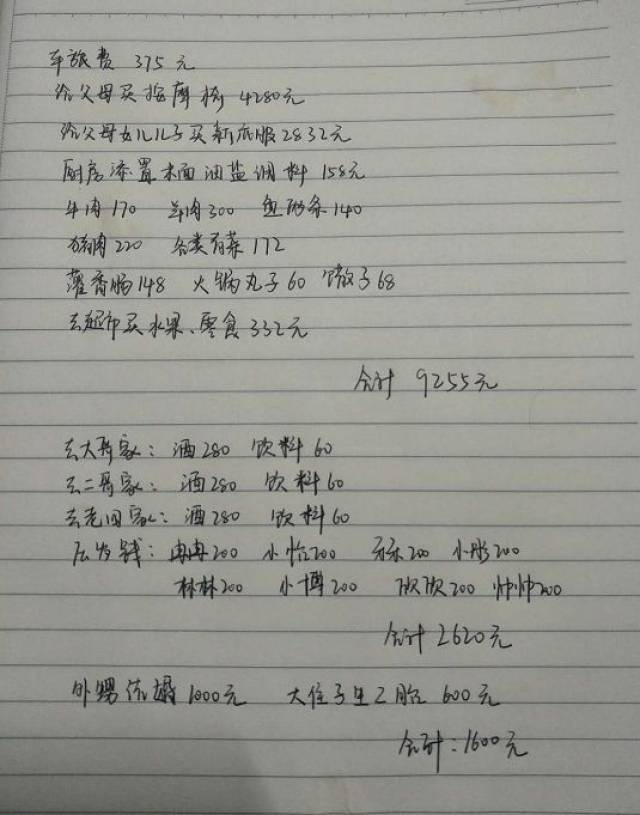 车旅费 375元
给父母买按摩椅 4280元
给父母女儿儿子买新衣服2832元
厨房添置米面油盐调料 158元
牛肉170 羊肉300 鱼砍条140
猪肉220 各类青菜172
灌香肠148 火锅丸子60 馓子68
去超市买水果、零食332元
合计 9255元
去大哥家: 酒280 饮料60
去二哥家: 酒280 饮料60
去老四家: 酒280 饮料60
压岁钱: 冉冉200 小怡200 200 小彤200
林林200 小博200 欣欣200 帅帅200
合计2620元
外甥结婚1000元 大侄子生二胎 600元
合计:1600元